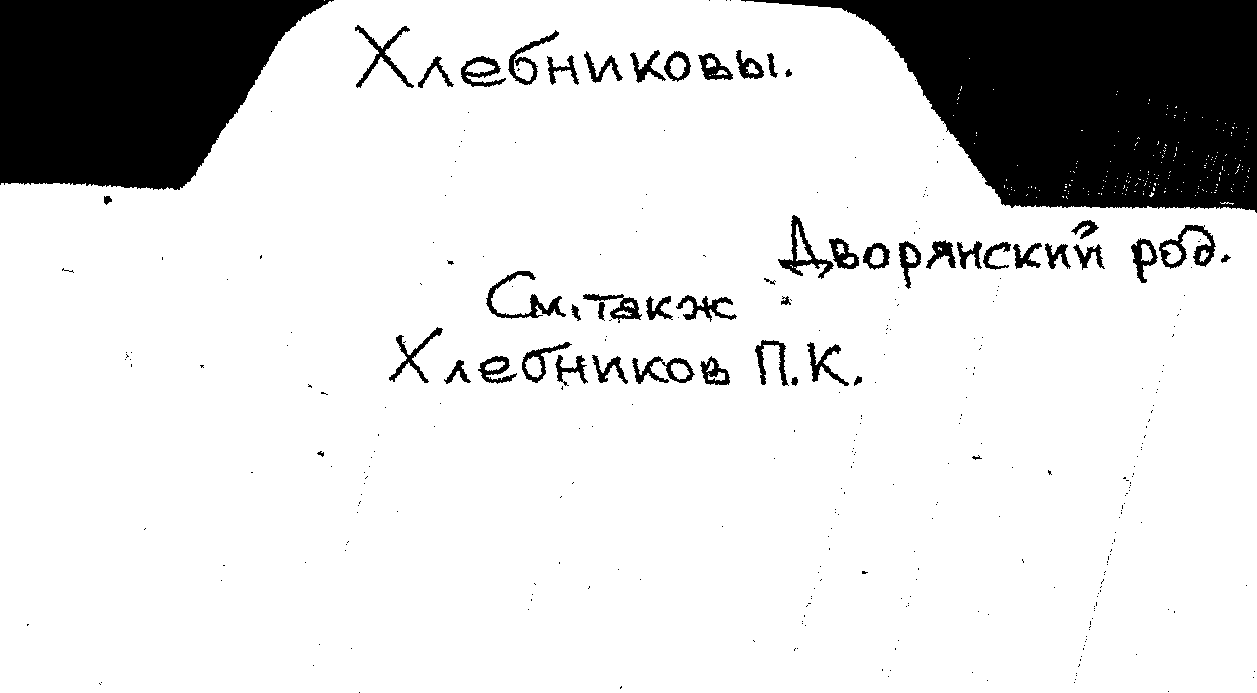 Хлебниковы.
Дворянский род.
См. такж :
Хлебников П.К.